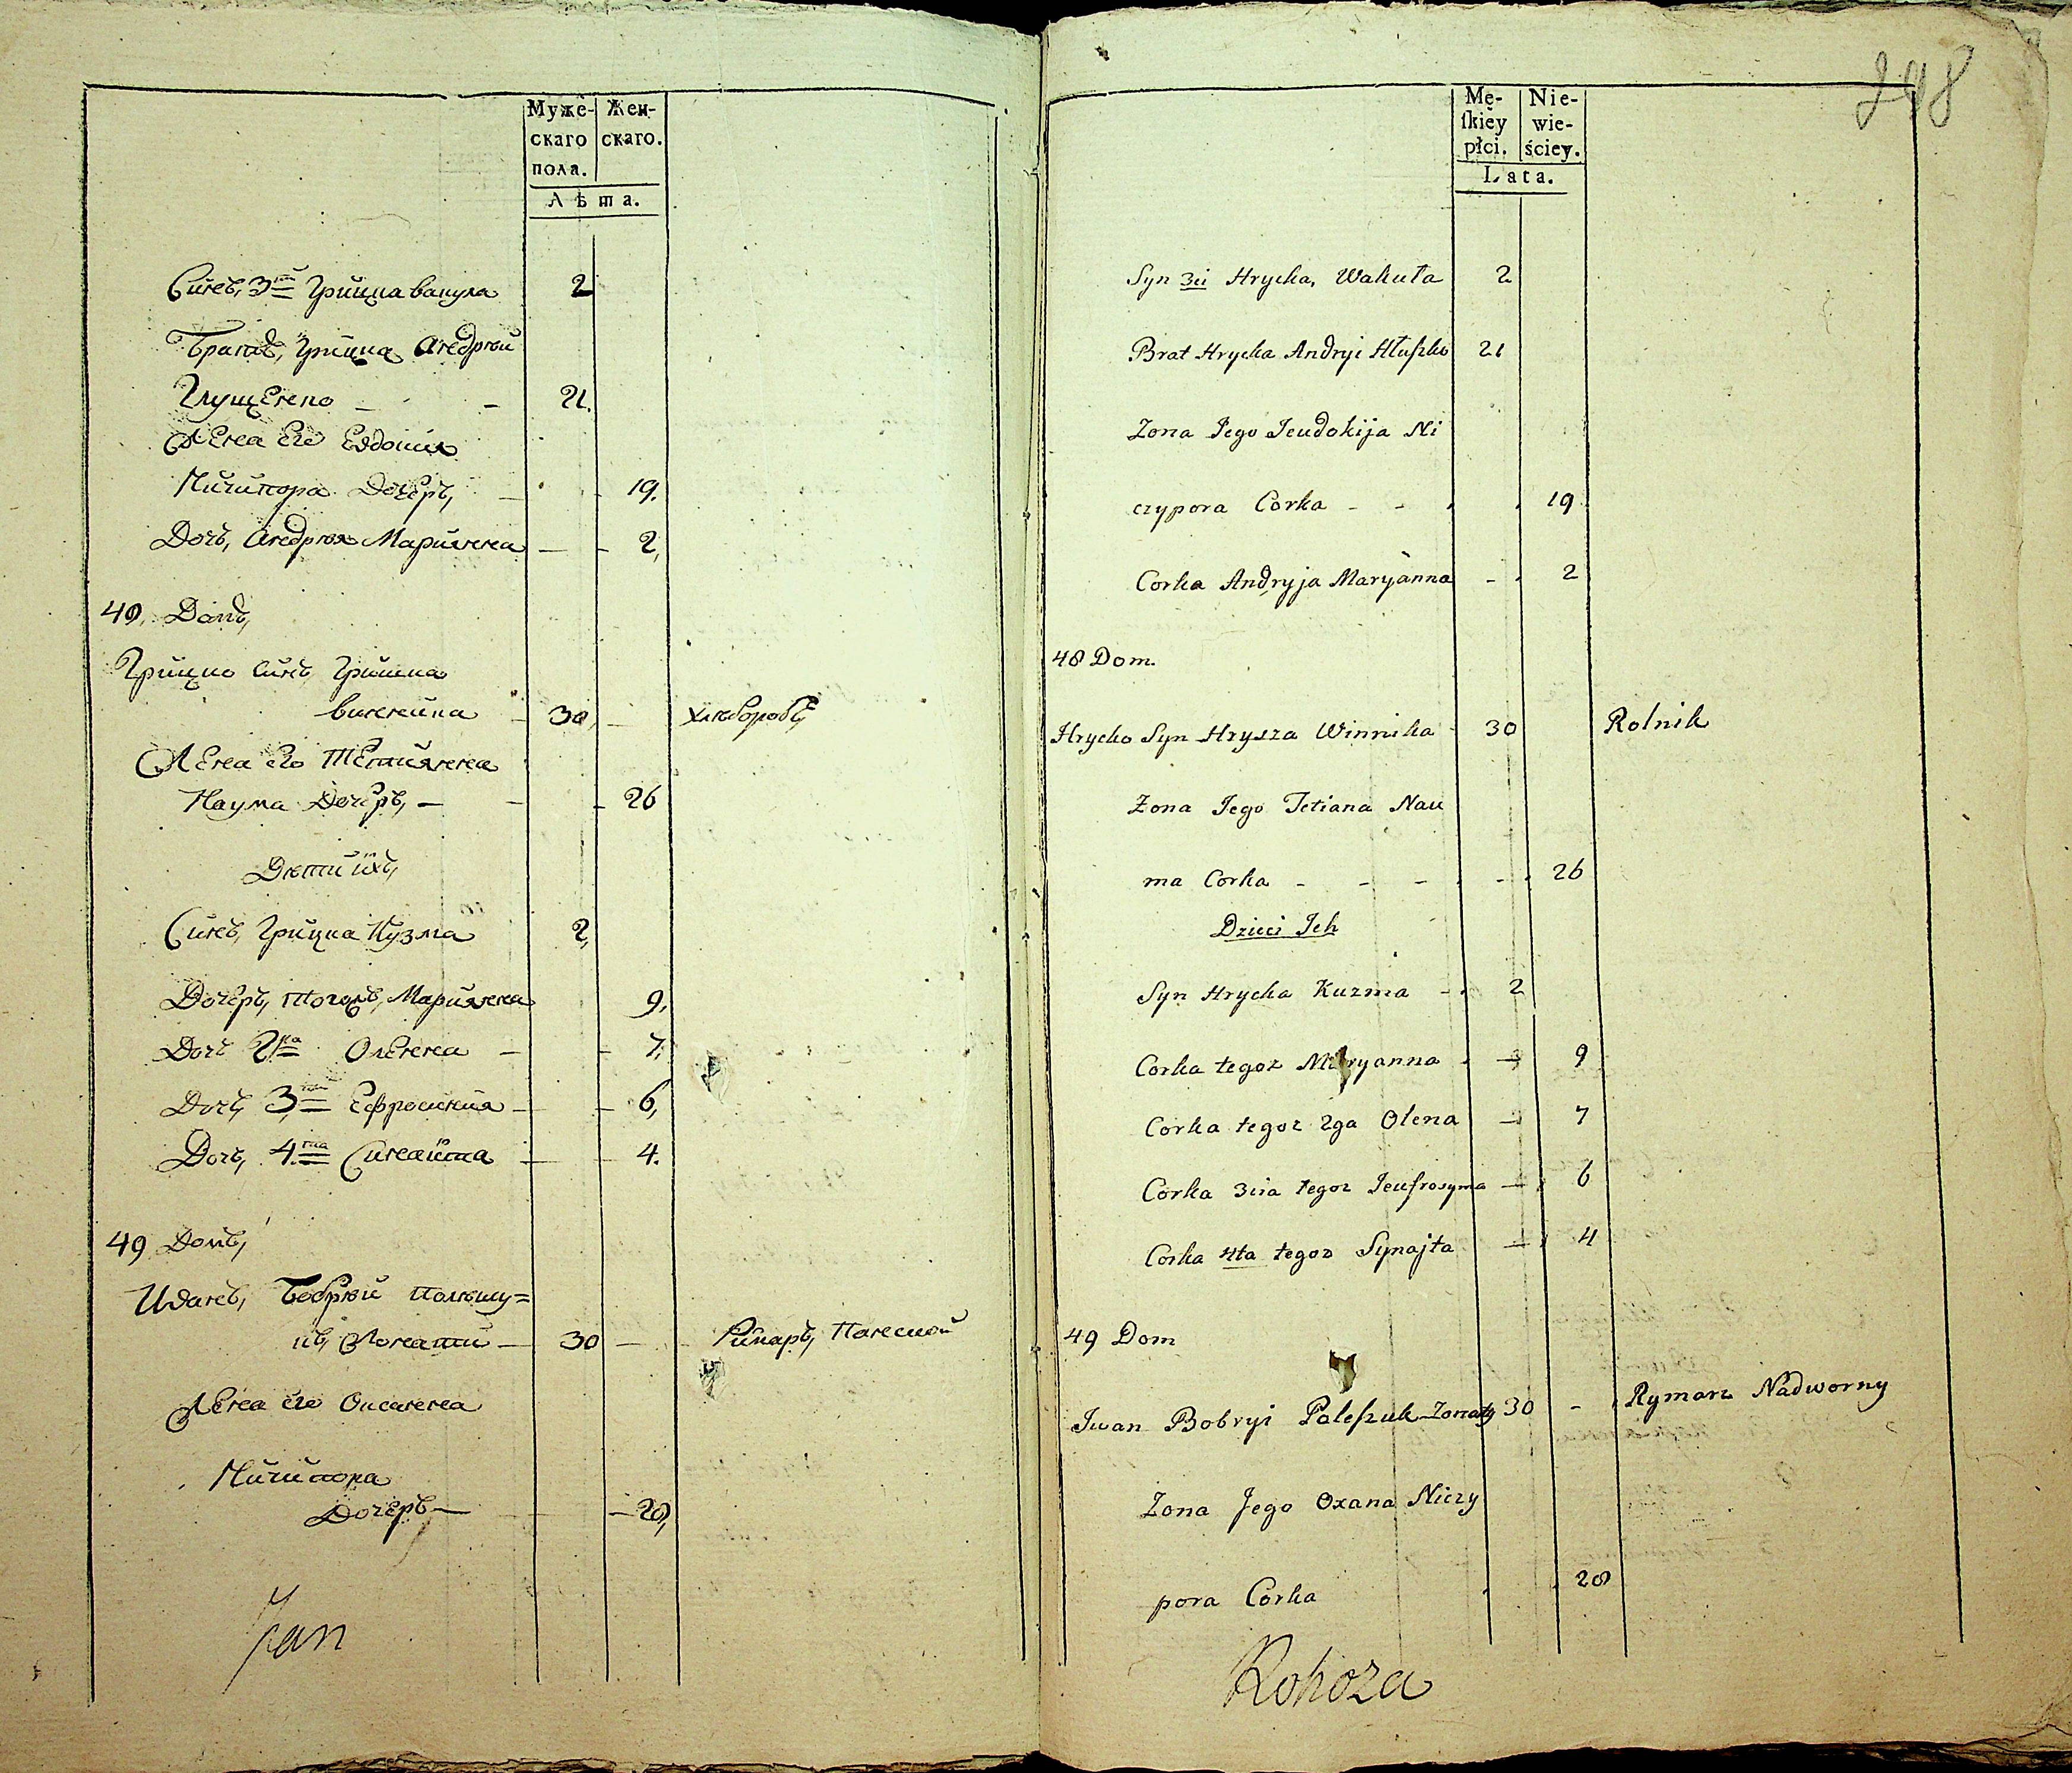 Муже-
скаго
пола.
Жен-
скаго.
Лѣта.
Синъ, 3й Грицка вакула 2
Братъ, Грицка Андрѣй
Глущенко - - 21.
Жена Его Евдокия
Ничипора Дочеръ, - 19.
Дочь, Андрѣя Марианна - - 2,
48, Домъ,
Грицко синъ Гришка
винника - 30, - Хлѣборобъ,
Жена его Тетианна
Наума Дочеръ, - - - 26
Дѣти ихъ,
Синъ, Грицка Кузма 2,
Дочеръ, тогожъ, Марианна 9,
Дочь 2га Оленна - - 7,
Дочь, 3та Ефросиния - - 6,
Дочь, 4та Синаита - - 4.
49 Домъ,
Иванъ, Бобрѣй Полѣшу=
къ, Жонатій - 30 - Римаръ, Панской
Жена его Оксанна
Ничипора
Дочеръ - - 28,
Jan
248
Mę-
ſkiey
płci.
Nie-
wie-
ściey.
Lata.
Syn 3ci Hrycka, Wakuła 2
Brat Hrycka Andryi Hłuſzko 21
Zona Jego Jeudokija Ni
czypora Corka - - 19
Corka Andryja Maryanna - 2
48 Dom.
Hrycko Syn Hrysza Winnika 30 Rolnik
Zona Jego Tetiana Nau
ma Corka - - - - 26
Dzieci Ich
Syn Hrycka Kuzma - 2
Corka tegoz Maryanna - 9
Corka tegoz 2ga Olena - 7
Corka 3cia tegoz Jeufrosyma - 6
Corka 4ta tegoz Synajta - 4
49 Dom
Iwan Bobryi Paleſzuk Zonaty 30 - Rymarz Nadworny
Zona Jego Oxana Niczy
pora Corka 28
Rohoza